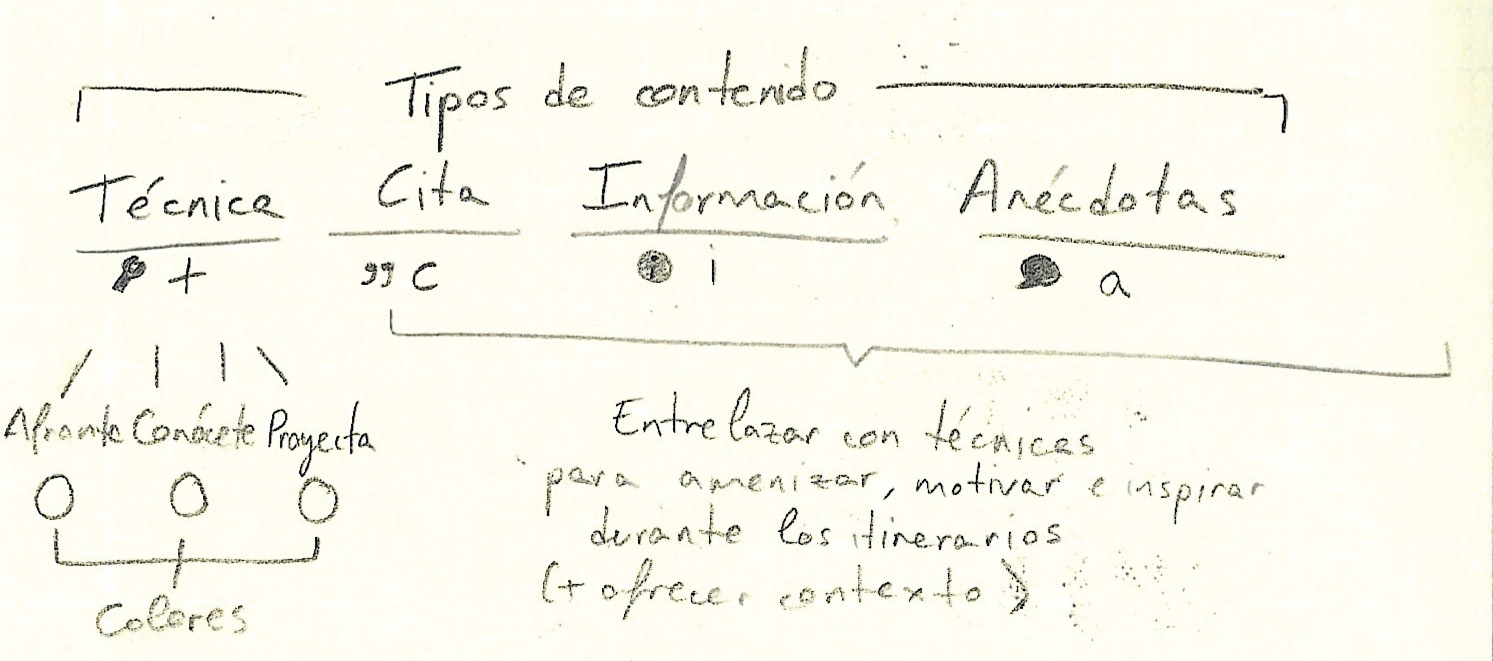 Tipos de contenido
Técnica Cita Información Anécdotas
t ”C i i a
Afronte Conócete Proyecta
Entrelazar con técnicas
para amenizar, motivar e inspirar
durante los itinerarios
(+ ofrecer contexto)
Colores